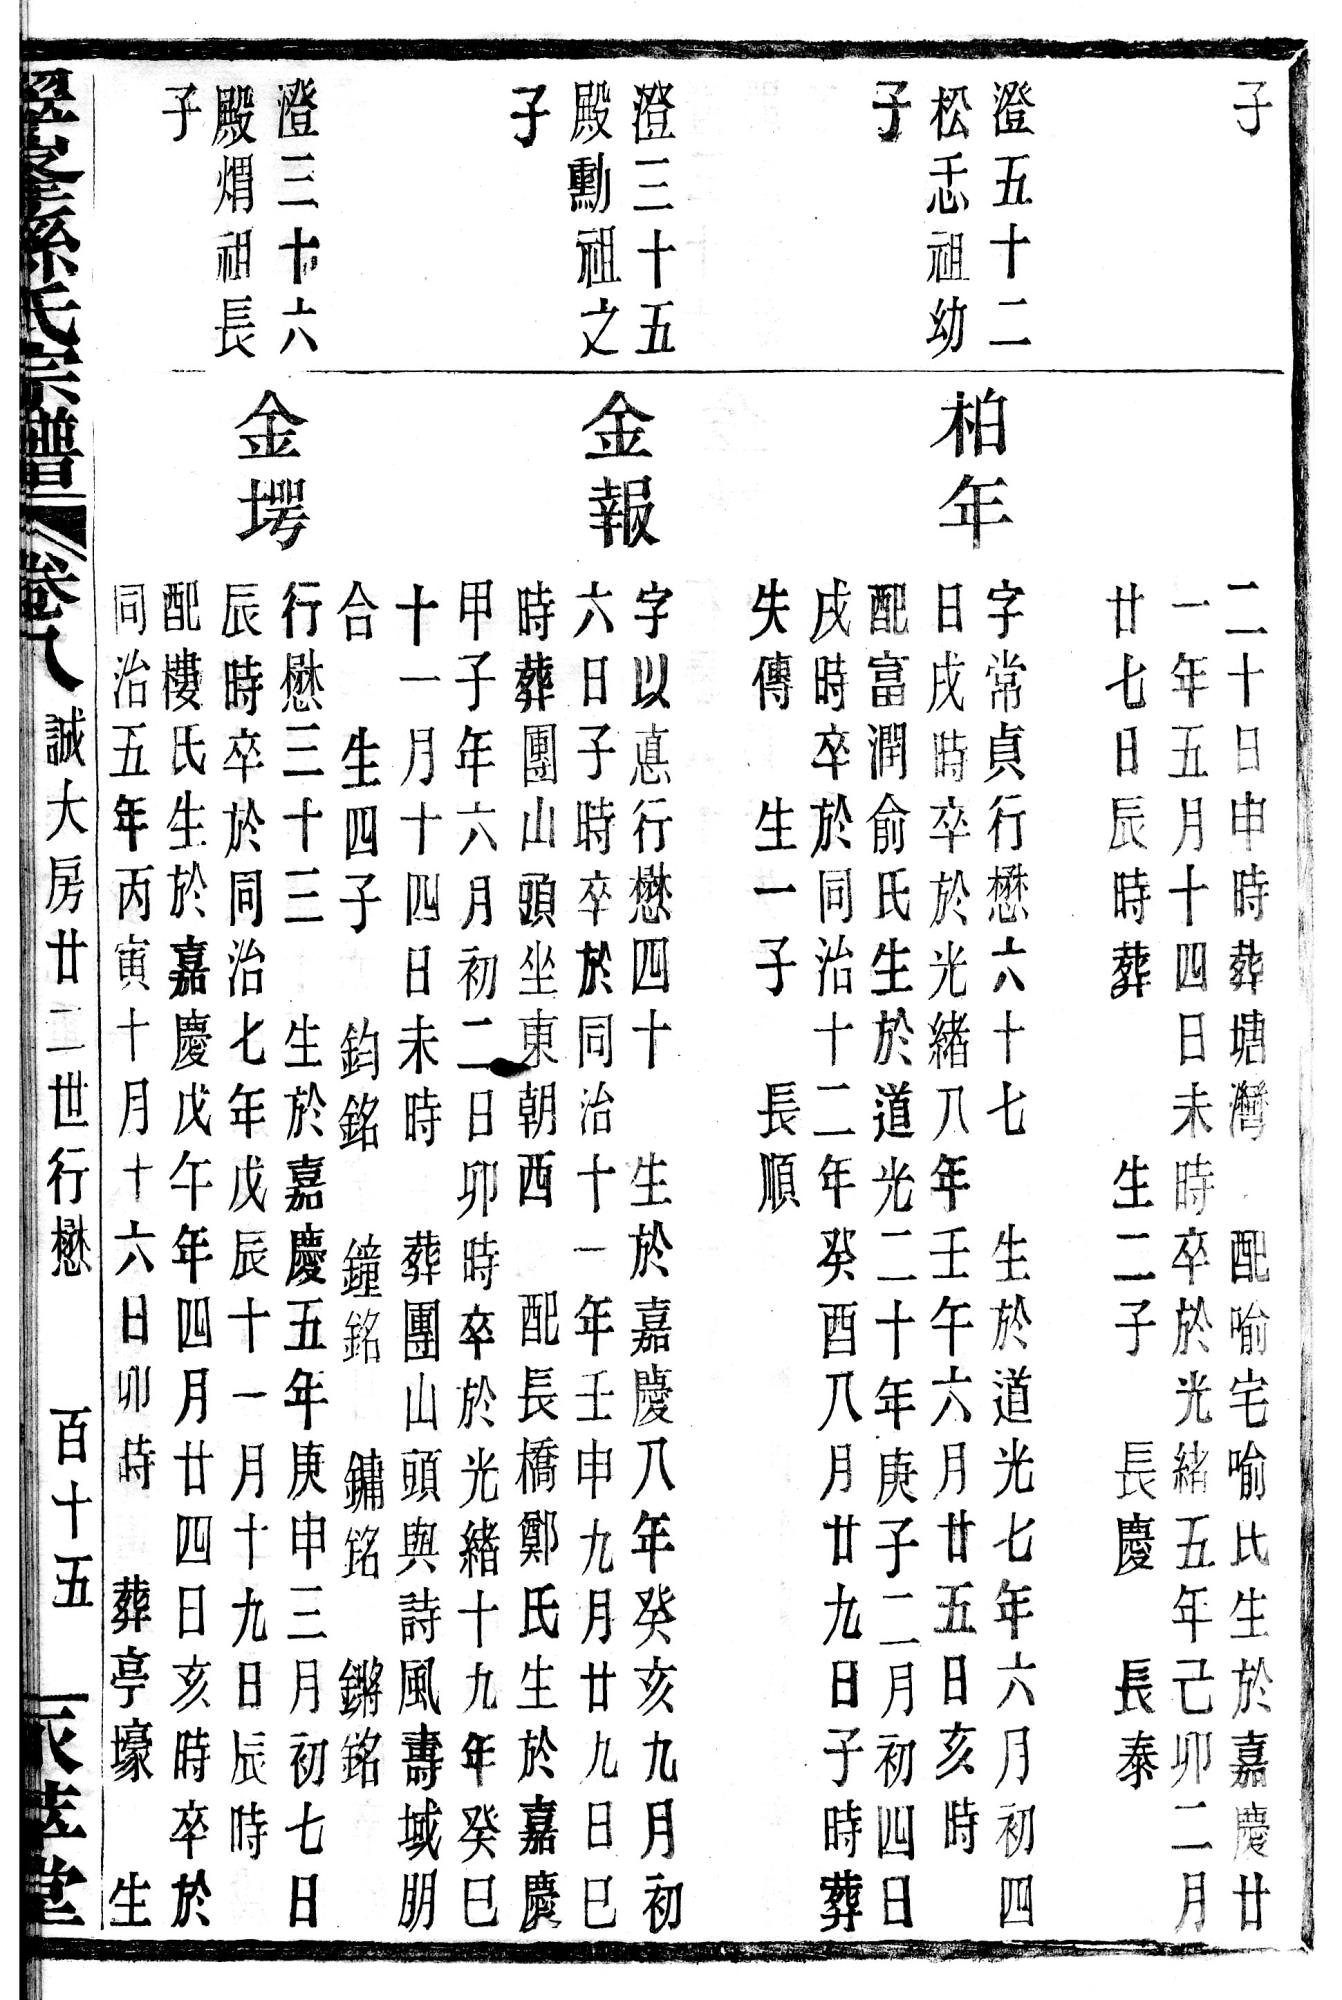 子
二十日申時葬塘灣 配喻宅喻氏生於嘉慶廿
一年五月十四日未時卒於光緒五年己卯二月
廿七日辰時葬 生二子 長慶 長泰
澄五十二
松忎祖幼
子
柏年
字常貞行懋六十七 生於道光七年六月初四
日戌時卒於光緒八年壬午六月廿五日亥時
配富潤俞氏生於道光二十年庚子二月初四日
戌時卒於同治十二年癸酉八月廿九日子時葬
失傳 生一子 長順
澄三十五
殿勳祖之
子
金報
字以惪行懋四十 生於嘉慶八年癸亥九月初
六日子時卒於同治十一年壬申九月廿九日巳
時葬團山頭坐東朝西 配長橋鄭氏生於嘉慶
甲子年六月初二日卯時卒於光緒十九年癸巳
十一月十四日未時 葬團山頭與詩風壽域朋
合 生四子 鈞銘 鐘銘 鏞銘 鏘銘
澄三十六
殿焆祖長
子
金堮
行懋三十三 生於嘉慶五年庚申三月初七日
辰時卒於同治七年戊辰十一月十九日辰時
配樓氏生於嘉慶戊午年四月廿四日亥時卒於
同治五年丙寅十月十六日卯時 葬亭壕 生
孫氏宗譜 卷八 誠大房廿二世行懋 百十五 堂